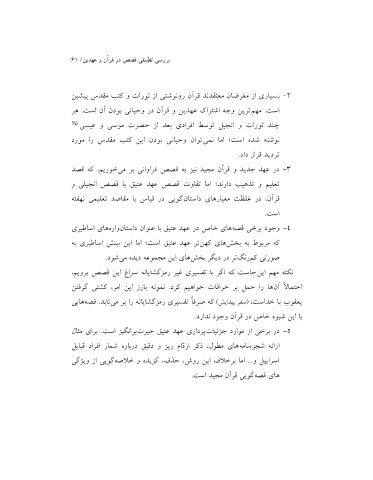 بررسی تطبیقی قصص در قرآن و عهدین / ۶۱
۲- بسیاری از مغرضان معتقدند قرآن رونوشتی از تورات و کتب مقدس پیشین
است. مهم‌ترین وجه اشتراک عهدین و قرآن در وحیانی بودن آن است. هر
چند تورات و انجیل توسط افرادی بعد از حضرت موسی و عیسی
نوشته شده است؛ اما نمی‌توان وحیانی بودن این کتب مقدس را مورد
تردید قرار داد.
۳- در عهد جدید و قرآن مجید نیز به قصص فراوانی بر می‌خوریم، که قصد
تعلیم و تذهیب دارند؛ اما تفاوت قصص عهد عتیق با قصص انجیلی و
قرآن، در غلظت معیارهای داستان‌گویی در قیاس با مقاصد تعلیمی نهفته
است.
۴- وجود برخی قصه‌های خاص در عهد عتیق با عنوان داستان‌واره‌های اساطیری
که مربوط به بخش‌های کهن‌تر عهد عتیق است؛ اما این بینش اساطیری به
صورتی کم‌رنگ‌تر در دیگر بخش‌های این مجموعه دیده می‌شود.
نکته مهم این‌جاست که اگر با تفسیری غیر رمزگشایانه سراغ این قصص برویم،
احتمالاً آن‌ها را حمل بر خرافات خواهیم کرد. نمونه بارز این امر، کشتی گرفتن
یعقوب با خداست، (سفر پیدایش) که صرفاً تفسیری رمزگشایانه را بر می‌تابد. قصه‌هایی
با این شیوه خاص در قرآن وجود ندارد.
۵- در برخی از موارد جزئیات‌پردازی عهد عتیق حیرت‌برانگیز است. برای مثال
ارائه شجره‌نامه‌های مطول، ذکر ارقام ریز و دقیق درباره شمار افراد قبایل
اسراییل و... اما برخلاف این روش، حذف، گزیده و خلاصه‌گویی از ویژگی
های قصه‌گویی قرآن مجید است.